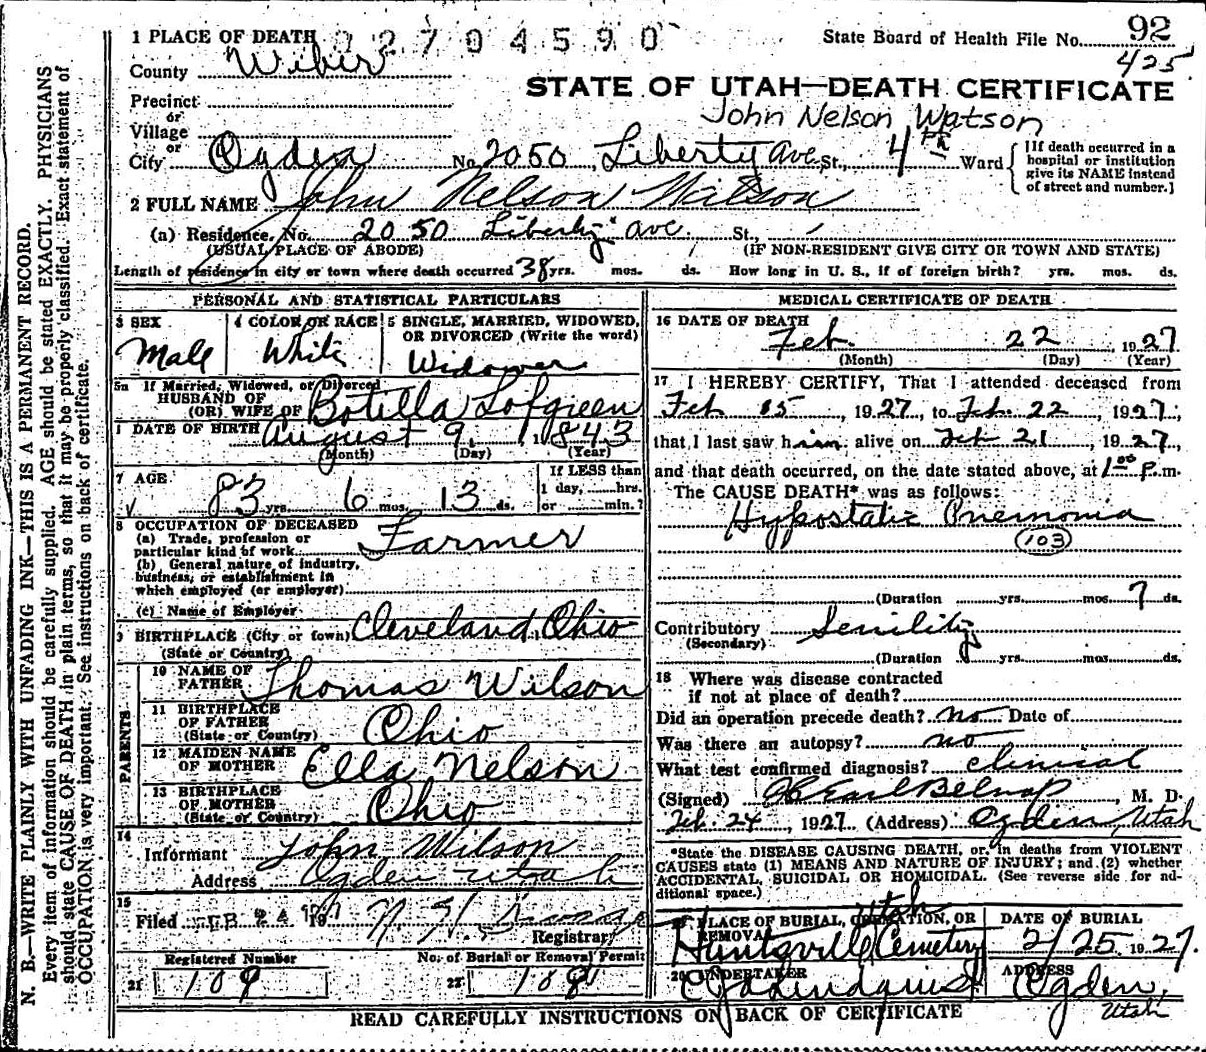 1 PLACE OF DEATH 02704590 State Board of Health File No. 92
425
County Wiber
STATE OF UTAH—DEATH CERTIFICATE
Precinct
or
John Nelson Watson
Village
or
City Ogden No. 2050 Liberty Ave St., 4th Ward
[If death occurred in a hospital or institution give its NAME instead of street and number.]
2 FULL NAME John Nelson Wilson
(a) Residence. No. 2050 Liberty ave. St.,
(USUAL PLACE OF ABODE) (IF NON-RESIDENT GIVE CITY OR TOWN AND STATE)
Length of residence in city or town where death occurred 38 yrs. mos. ds. How long in U. S., if of foreign birth? yrs. mos. ds.
PERSONAL AND STATISTICAL PARTICULARS
3 SEX
Male
4 COLOR OR RACE
White
5 SINGLE, MARRIED, WIDOWED,
OR DIVORCED (Write the word)
Widower
5a If Married, Widowed, or Divorced
HUSBAND OF
(OR) WIFE OF Botilla Lofgreen
DATE OF BIRTH August 9, 1843
(Month) (Day) (Year)
7 AGE
83 yrs. 6 mos. 13 ds.
If LESS than
1 day, hrs.
or min.?
8 OCCUPATION OF DECEASED
(a) Trade, profession or
particular kind of work Farmer
(b) General nature of industry,
business, or establishment in
which employed (or employer)
(c) Name of Employer
9 BIRTHPLACE (City or town) Cleveland, Ohio
(State or Country)
PARENTS
10 NAME OF
FATHER Thomas Wilson
11 BIRTHPLACE
OF FATHER
(State or Country) Ohio
12 MAIDEN NAME
OF MOTHER Ella Nelson
13 BIRTHPLACE
OF MOTHER
(State or Country) Ohio
14
Informant John Wilson
Address Ogden Utah
15
Filed FEB 24 1927
Registrar
Registered Number No. of Burial or Removal Permit
21 109 22 108
MEDICAL CERTIFICATE OF DEATH
16 DATE OF DEATH
Feb. 22 1927
(Month) (Day) (Year)
17 I HEREBY CERTIFY, That I attended deceased from
Feb 15, 1927, to Feb 22, 1927,
that I last saw him alive on Feb 21, 1927,
and that death occurred, on the date stated above, at 1 00 P.m.
The CAUSE DEATH* was as follows:
Hypostatic Pnemonia
103
(Duration yrs. mos. 7 ds.
Contributory Senility
(Secondary)
(Duration yrs. mos. ds.
18 Where was disease contracted
if not at place of death?
Did an operation precede death? no Date of
Was there an autopsy? no
What test confirmed diagnosis? clinical
(Signed) Earl Belnap, M. D.
Feb. 24, 1927 (Address) Ogden, Utah
*State the DISEASE CAUSING DEATH, or, in deaths from VIOLENT
CAUSES state (1) MEANS AND NATURE OF INJURY; and (2) whether
ACCIDENTAL, SUICIDAL OR HOMICIDAL. (See reverse side for ad-
ditional space.)
PLACE OF BURIAL, CREMATION, OR
REMOVAL Utah
Huntsville Cemetery
DATE OF BURIAL
2/25 1927.
20 UNDERTAKER
Lindquist
ADDRESS
Ogden,
Utah
READ CAREFULLY INSTRUCTIONS ON BACK OF CERTIFICATE
N. B.—WRITE PLAINLY WITH UNFADING INK—THIS IS A PERMANENT RECORD.
Every item of information should be carefully supplied. AGE should be stated EXACTLY. PHYSICIANS
should state CAUSE OF DEATH in plain terms, so that it may be properly classified. Exact statement of
OCCUPATION is very important. See instructions on back of certificate.